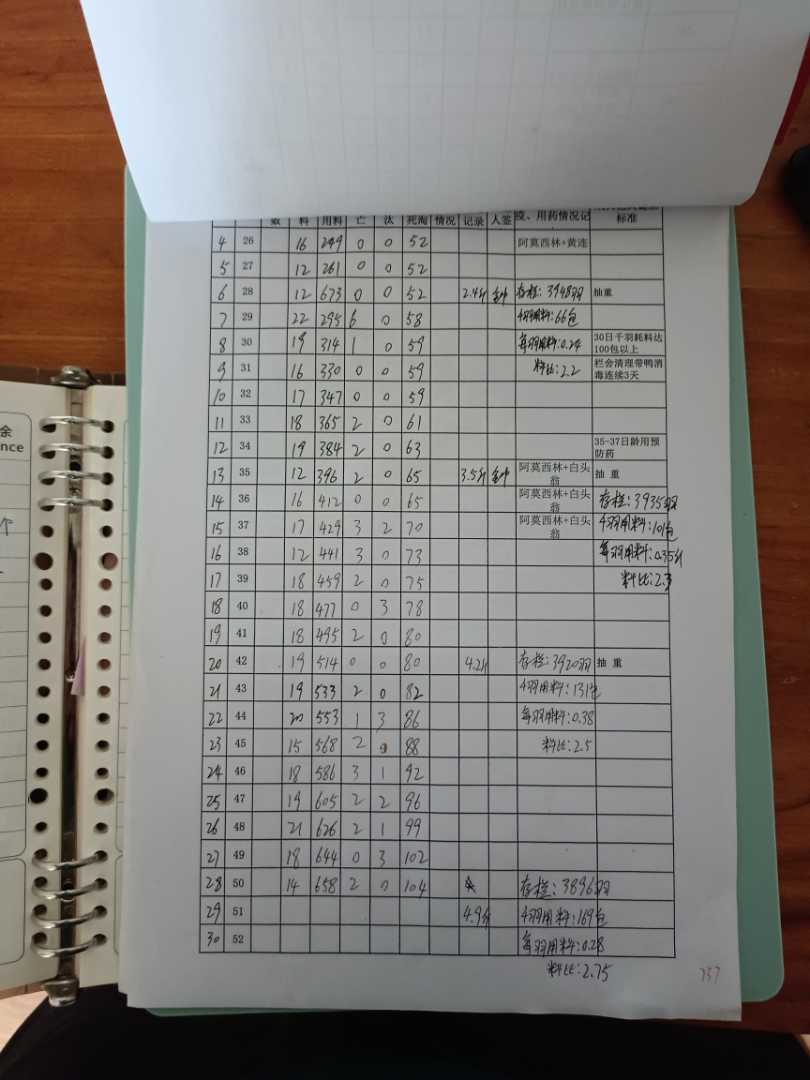 数 料 用料 亡 汰 死淘 情况 记录 人签 疫、用药情况记 标准
4 26 16 249 0 0 52 阿莫西林+黄连
5 27 12 261 0 0 52
6 28 12 673 0 0 52 2.4斤 存栏:3948羽 抽重
7 29 22 295 6 0 58 千羽用料:66包
8 30 19 314 1 0 59 每羽用料:0.24 30日千羽耗料达100包以上
9 31 16 330 0 0 59 料比:2.2 栏舍清理带鸭消毒连续3天
10 32 17 347 0 0 59
11 33 18 365 2 0 61
12 34 19 384 2 0 63 35-37日龄用预防药
13 35 12 396 2 0 65 3.5斤 阿莫西林+白头翁 抽 重
14 36 16 412 0 0 65 阿莫西林+白头翁 存栏:3935羽
15 37 17 429 3 2 70 阿莫西林+白头翁 千羽用料:101包
16 38 12 441 3 0 73 每羽用料:0.35斤
17 39 18 459 2 0 75 料比:2.3
18 40 18 477 0 3 78
19 41 18 495 2 0 80
20 42 19 514 0 0 80 4.2斤 存栏:3920羽 抽 重
21 43 19 533 2 0 82 千羽用料:131包
22 44 20 553 1 3 86 每羽用料:0.38
23 45 15 568 2 0 88 料比:2.5
24 46 18 586 3 1 92
25 47 19 605 2 2 96
26 48 21 626 2 1 99
27 49 18 644 0 3 102
28 50 14 658 2 0 104 存栏:3896羽
29 51 4.9斤 千羽用料:169包
30 52 每羽用料:0.28
料比:2.75
737
余
nce
个